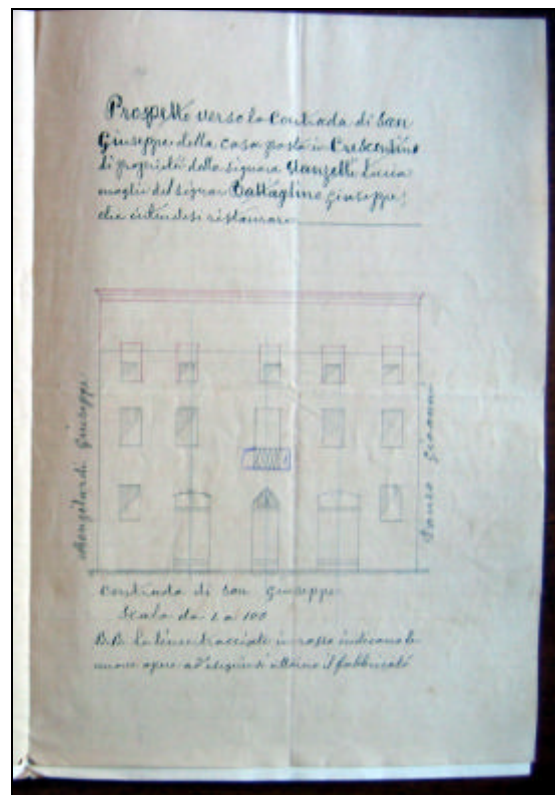 Prospetto verso la Contrada di San
Giuseppe della casa posta in Crescentino
di proprietà della signora Stanzelli Lucia
moglie del signor Battaglino Giuseppe,
che intendesi ristaurare
Giuseppe
contrada di San Giuseppe
Scala da 1 a 100
N.B. Le linee tracciate in rosso indicano le
nuove opere ad eseguirsi attorno il fabbricato